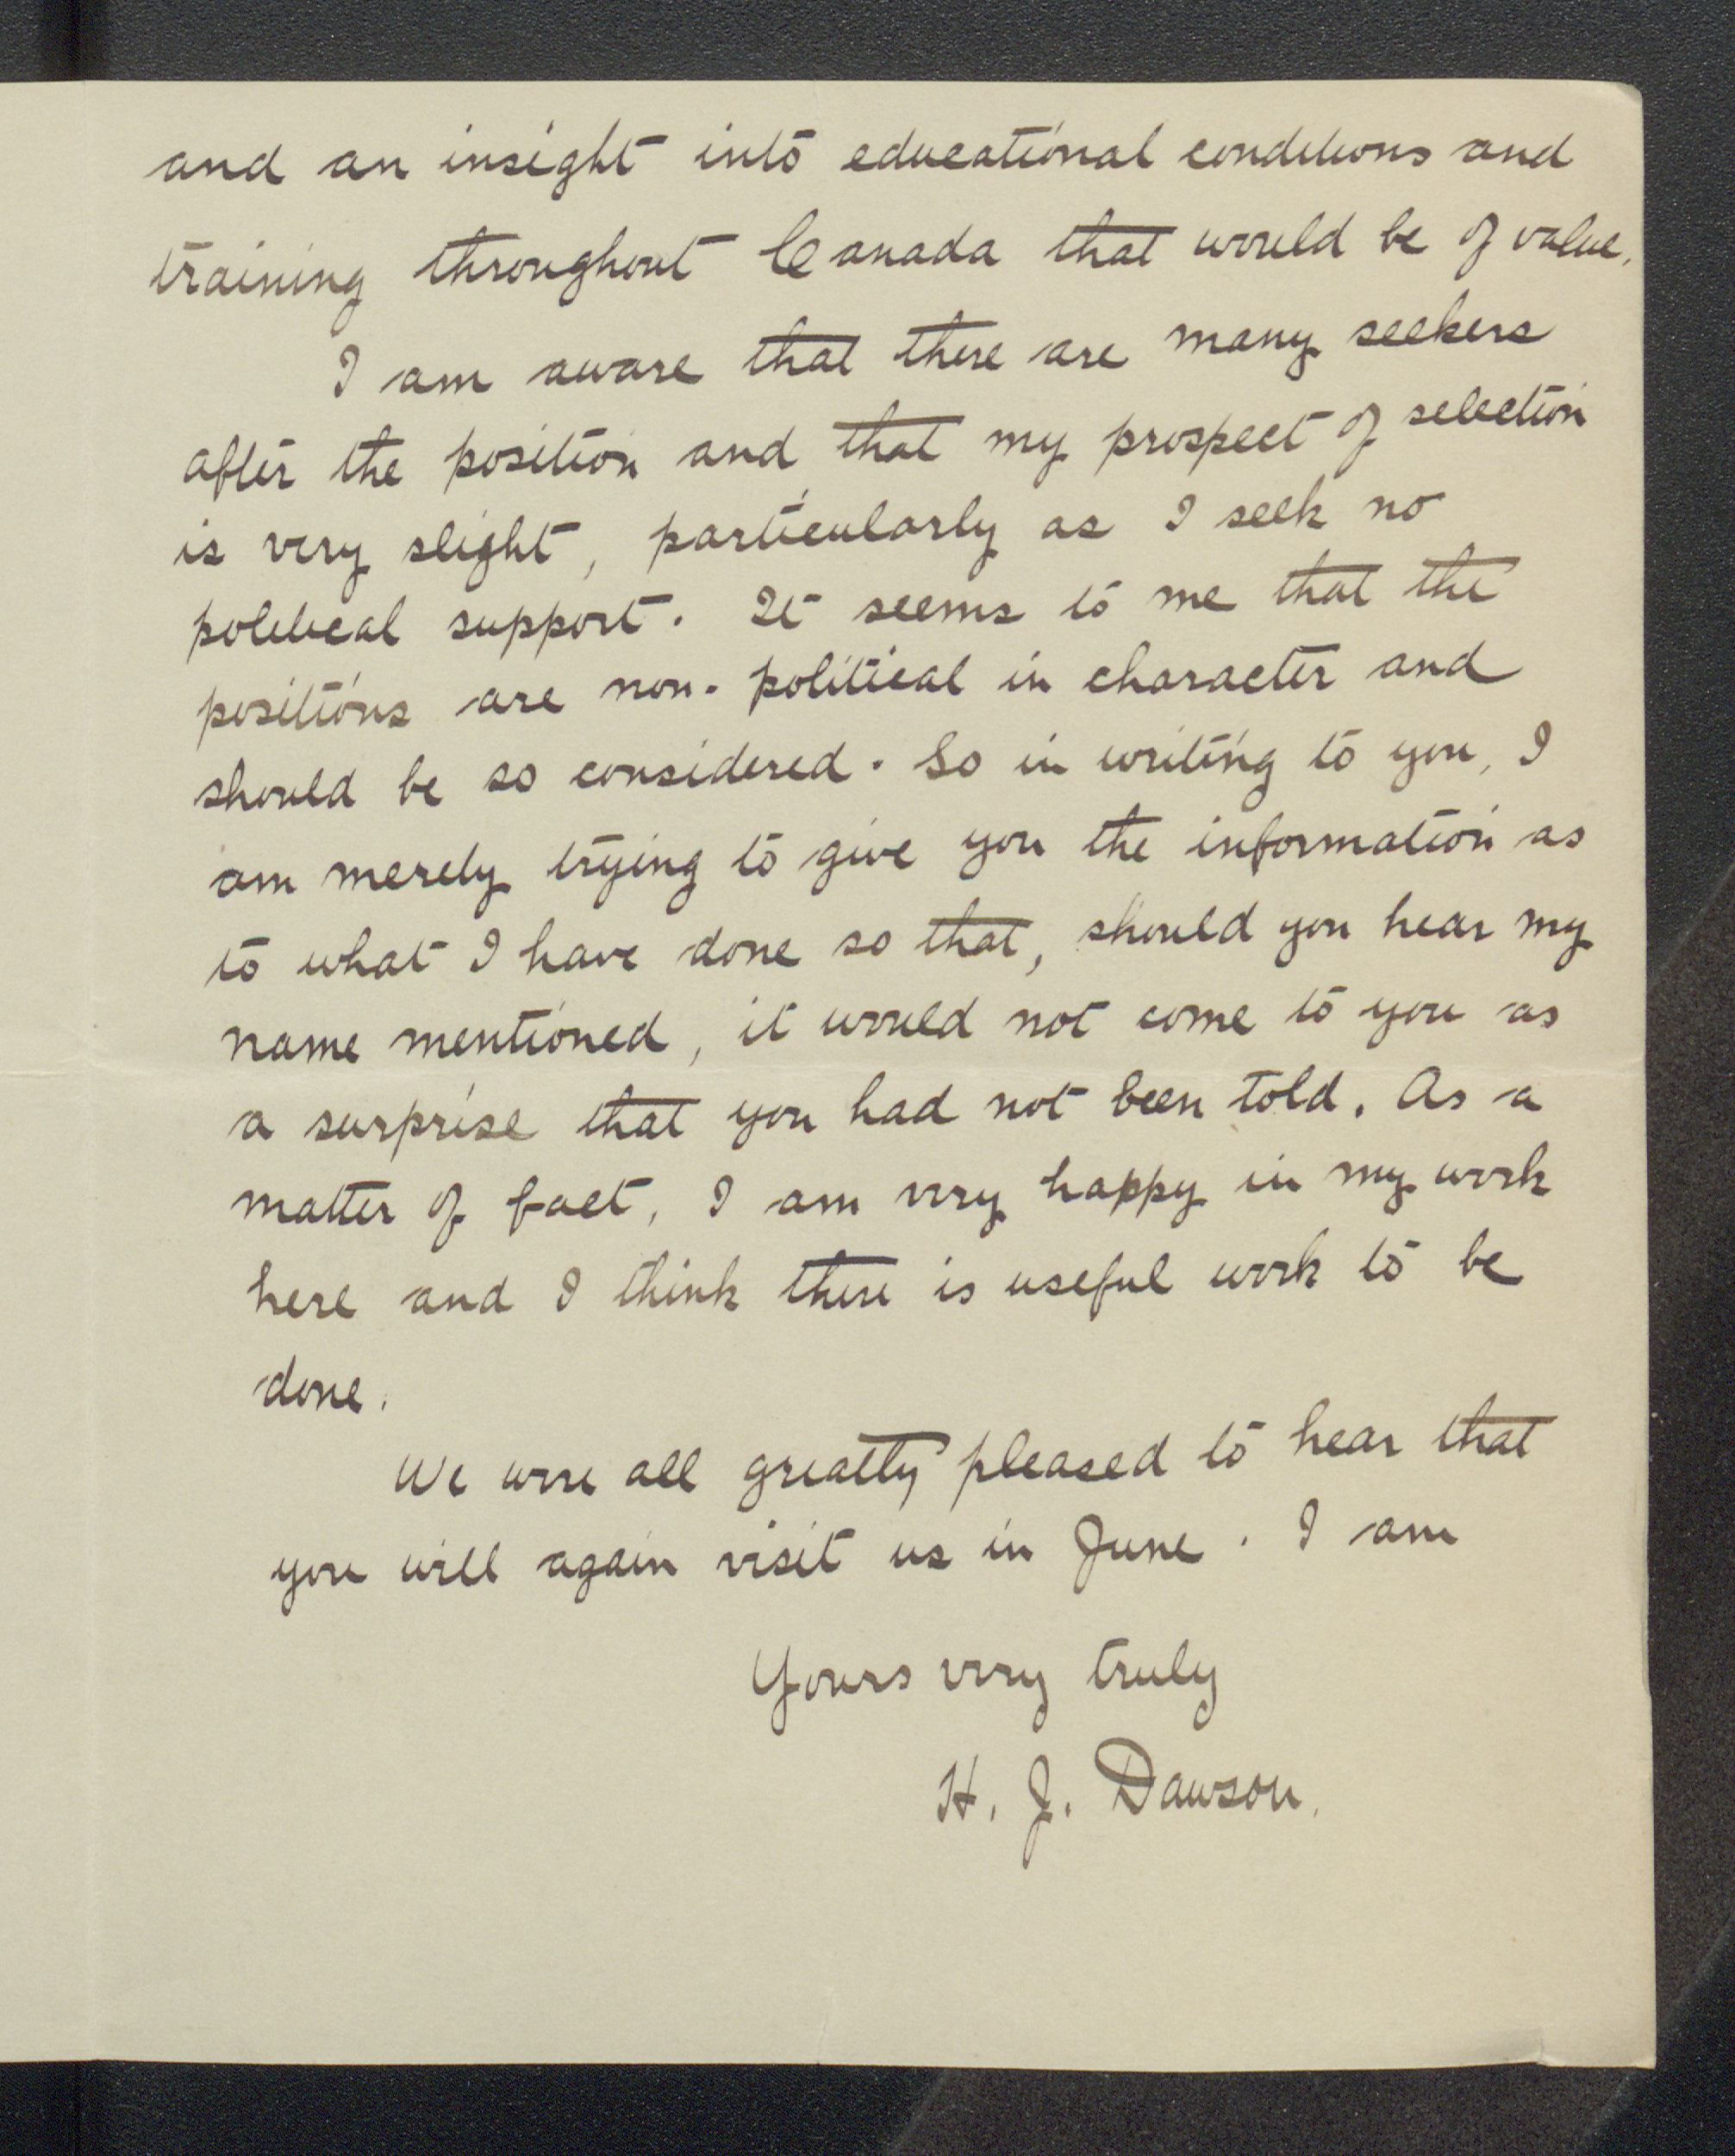 and an insight into educational conditions and
training throughout Canada that would be of value.
I am aware that there are many seekers
after the position and that my prospect of selection
is very slight, particularly as I seek no
political support. It seems to me that the
positions are non-political in character and
should be so considered. So in writing to you, I
am merely trying to give you the information as
to what I have done so that, should you hear my
name mentioned, it would not come to you as
a surprise that you had not been told. As a
matter of fact, I am very happy in my work
here and I think there is useful work to be
done.
We were all greatly pleased to hear that
you will again visit us in June. I am
Yours very truly
H. J. Dawson.